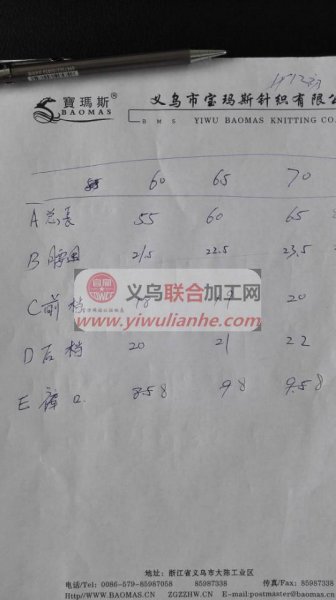 寶瑪斯
BAOMAS
义乌市宝玛斯针织有限公
B M S YIWU BAOMAS KNITTING CO.
60 65 70
A 总长 55 60 65
B 腰围 21.5 22.5 23.5
义乌联合加工网
www.yiwulianhe.com
C 前档 18 20
D 后档 20 21 22
E 裤口 8.58 98 9.58
地址：浙江省义乌市大陈工业区
电话/Tel: 0086-579-85987058 85987338 传真/Fax: 85987338
Http//WWW.BAOMAS.CN ZGZZHW.CN E-mail:postmaster@baomas.cn